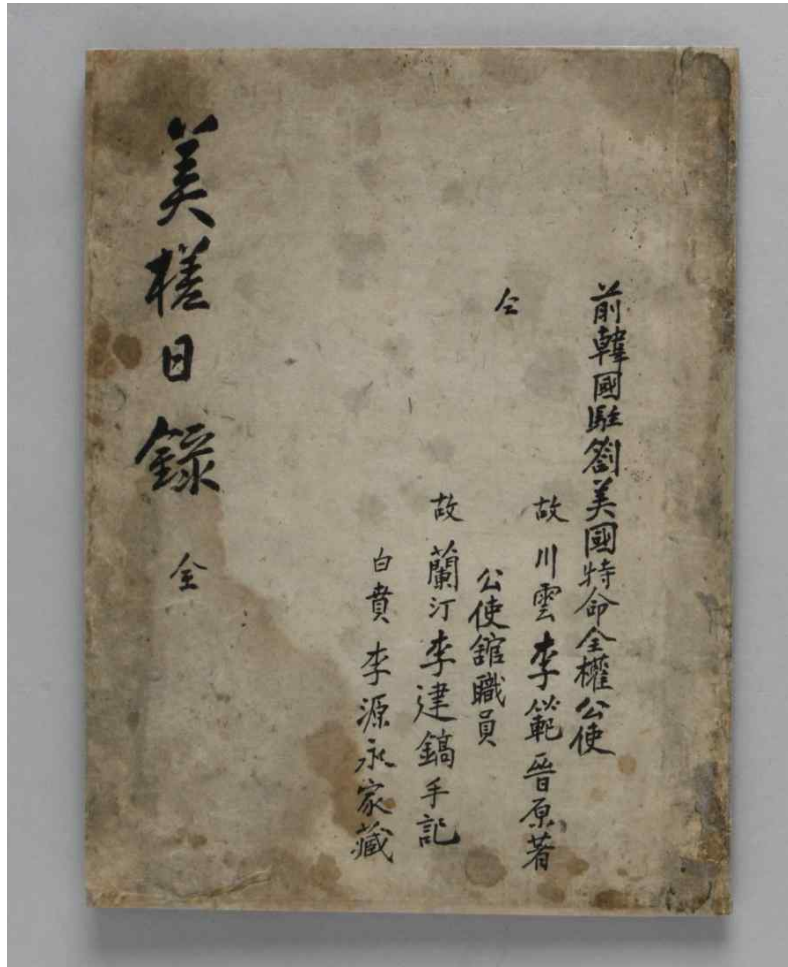 前韓國駐劄美國特命全權公使
故川雲李範晉原著
仝公使舘職員
故蘭汀李建鎬手記
白賁李源永家藏
美槎日錄 全